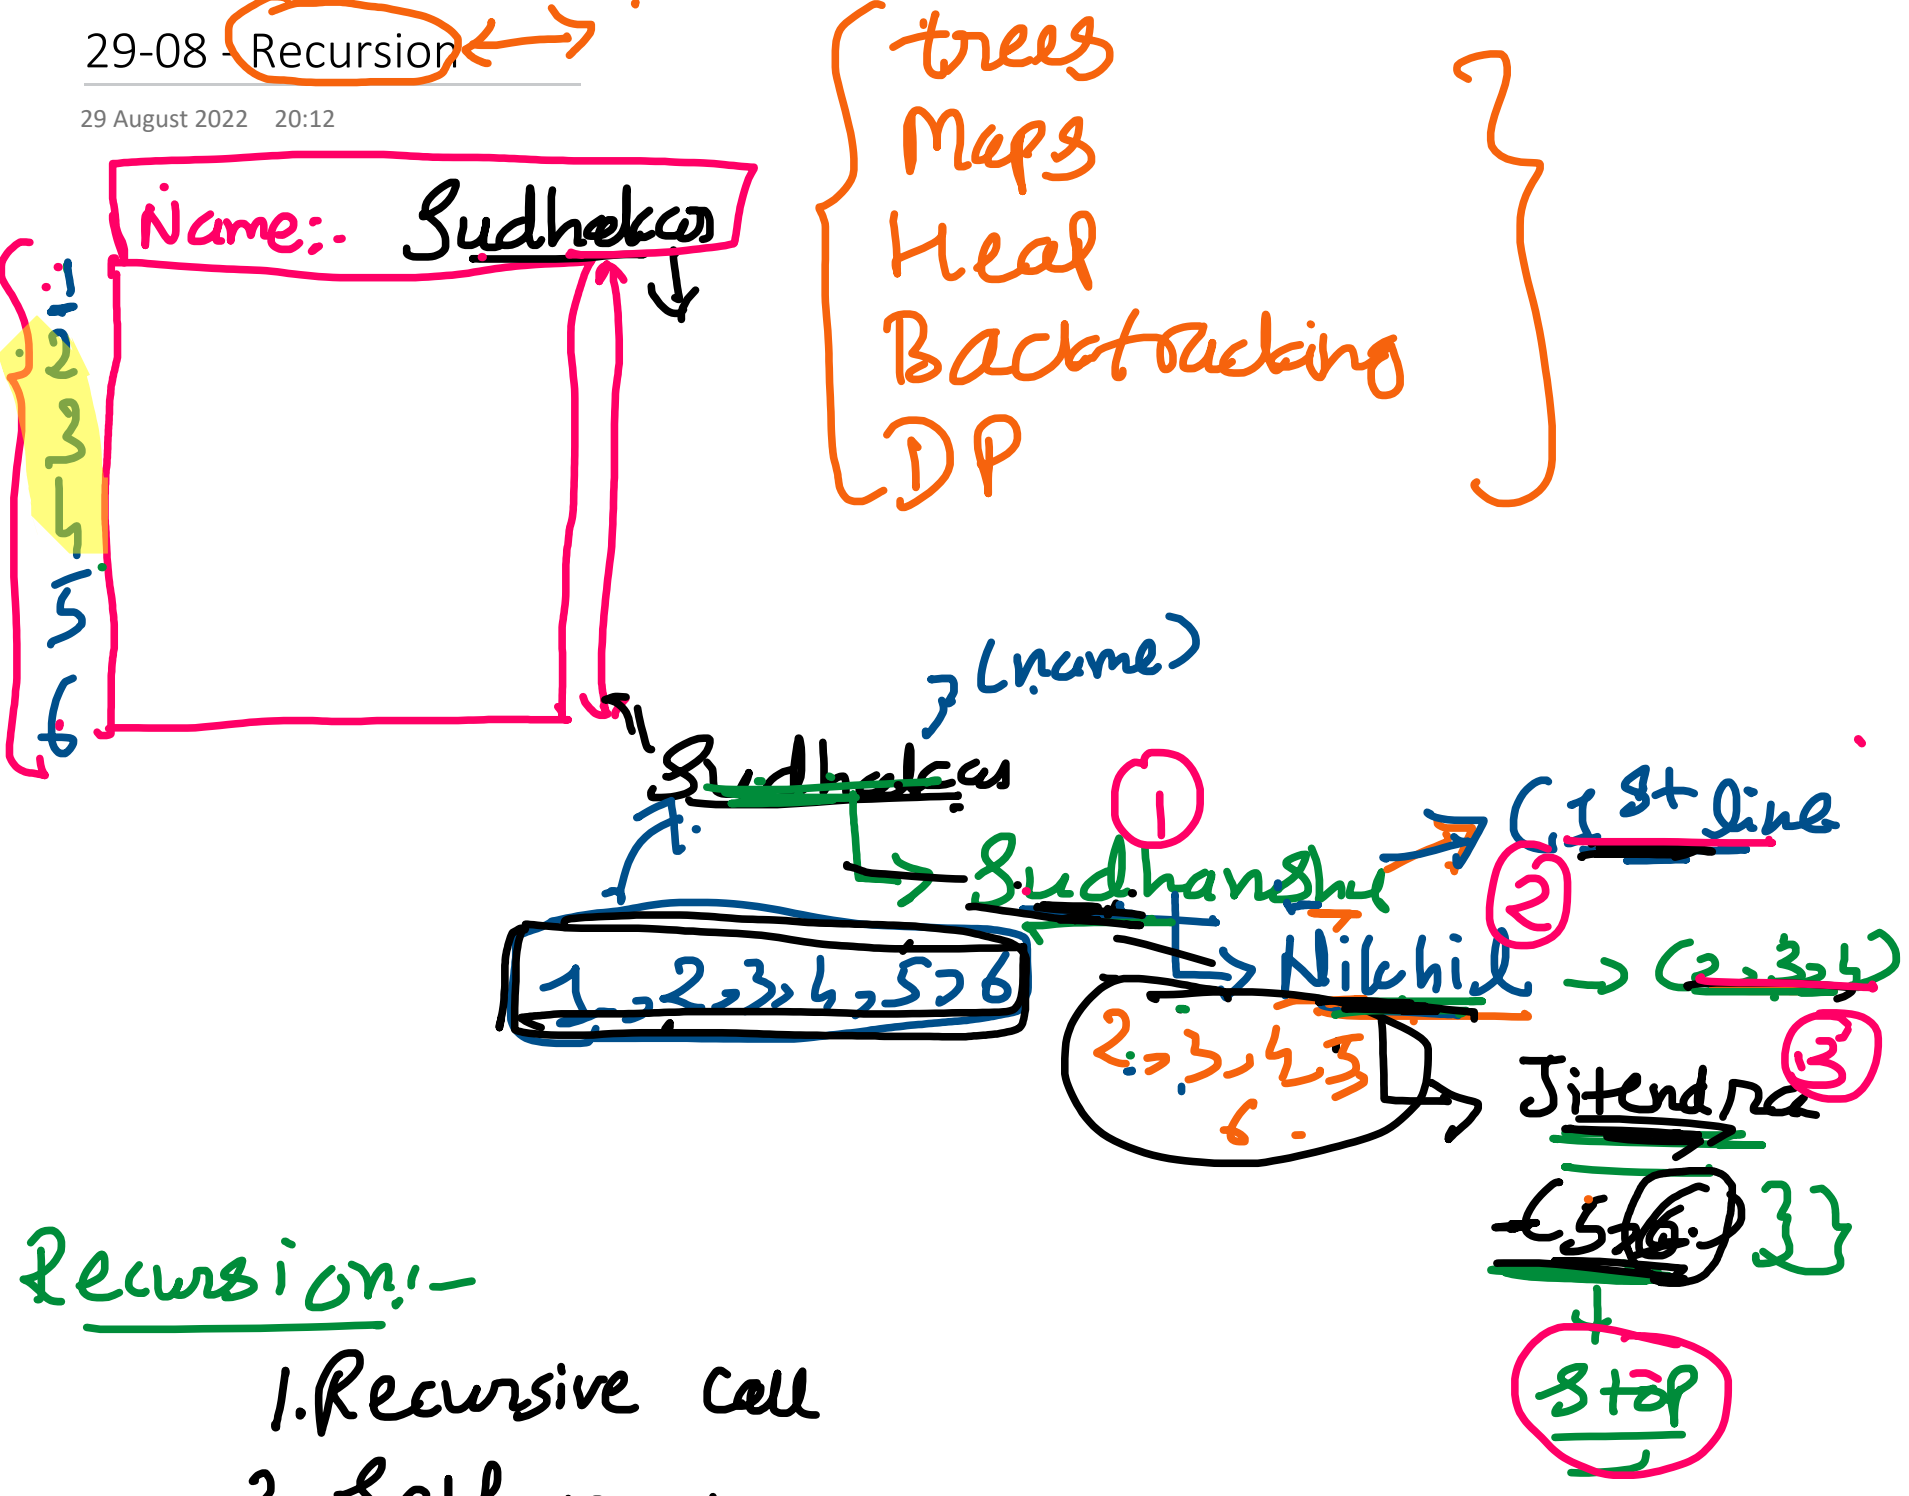 29-08 - Recursion
29 August 2022 20:12
trees
Maps
Heap
Backtracking
DP
Name:- Sudhakar
1
2
3
4
5
6
(name)
Sudhakar
1
Sudhanshu
(1st line
2
1, 2, 3, 4, 5, 6
Nikhil
(2, 3, 4)
2, 3, 4, 5
6
3
Jitendra
(5, 6)
Stop
Recursion:-
1. Recursive call
2.